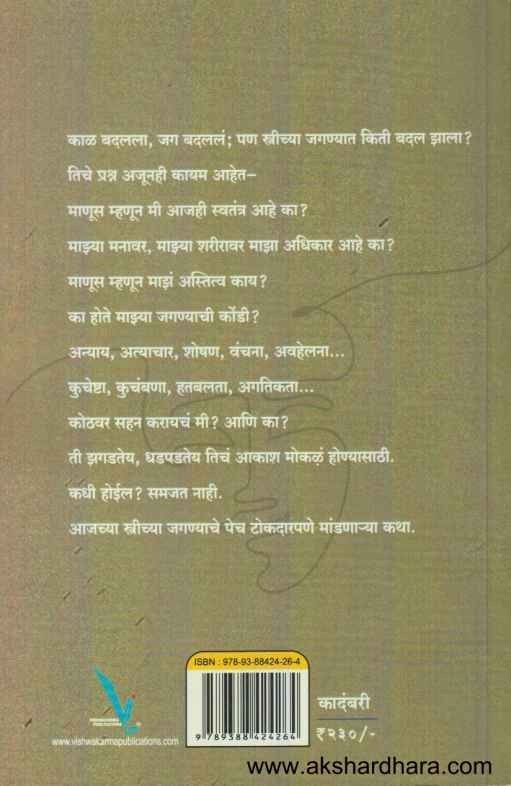 काळ बदलला, जग बदललं; पण स्त्रीच्या जगण्यात किती बदल झाला?
तिचे प्रश्न अजूनही कायम आहेत–
माणूस म्हणून मी आजही स्वतंत्र आहे का?
माझ्या मनावर, माझ्या शरीरावर माझा अधिकार आहे का?
माणूस म्हणून माझं अस्तित्व काय?
का होते माझ्या जगण्याची कोंडी?
अन्याय, अत्याचार, शोषण, वंचना, अवहेलना...
कुचेष्टा, कुचंबणा, हतबलता, अगतिकता...
कोठवर सहन करायचं मी? आणि का?
ती झगडतेय, धडपडतेय तिचं आकाश मोकळं होण्यासाठी.
कधी होईल? समजत नाही.
आजच्या स्त्रीच्या जगण्याचे पेच टोकदारपणे मांडणाऱ्या कथा.
ISBN : 978-93-88424-26-4
9 789388 424264
VISHWAKARMA
PUBLICATIONS
www.vishwakarmapublications.com
कादंबरी
₹२३०/-
www.akshardhara.com